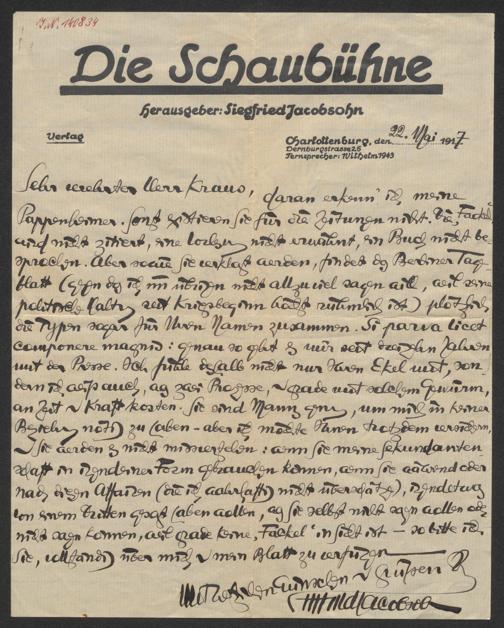 J.N. 140834
Die Schaubühne
Herausgeber: Siegfried Jacobsohn
Verlag
Charlottenburg, den 22. Mai 1917
Dernburgstrasse 25
Fernsprecher: Wilhelm 1943
Sehr verehrter Herr Kraus, daran erkenn' ich meine
Pappenheimer. Sonst existieren Sie für die Zeitungen nicht. Die Fackel
wird nicht zitiert, eine Vorlesung nicht erwähnt, ein Buch nicht be-
sprochen. Aber wenn Sie verklagt werden, findet das Berliner Tag-
blatt (gegen das ich im übrigen nicht allzuviel sagen will, weil seine
politische Haltung seit Kriegsbeginn höchst rühmlich ist) plötzlich
die Typen sogar für Ihren Namen zusammen. Si parva licet
componere magnis: genau so geht es mir seit dreizehn Jahren
mit der Presse. Ich fühle deshalb nicht nur Ihren Ekel mit, son-
dern ich weiss auch, was Prozesse, grade mit solchem Gewürm,
an Zeit u Kraft kosten. Sie sind Manns genug, um mich in keiner
Beziehung nötig zu haben - aber ich möchte Ihnen trotzdem versichern,
u Sie werden es nicht missverstehn: wenn Sie meine Sekundanten-
schaft in irgendeiner Form gebrauchen können, wenn Sie während oder
nach diesen Affairen (die ich wahrhaftig nicht überschätze), irgendetwas
von einem Dritten gesagt haben wollen, was Sie selbst nicht sagen wollen oder
nicht sagen können, weil grade keine „Fackel" in Sicht ist - so bitte ich
Sie, vollständig über mich u mein Blatt zu verfügen.
Mit herzlichen Wünschen u Grüssen Ihr
Jacobsohn